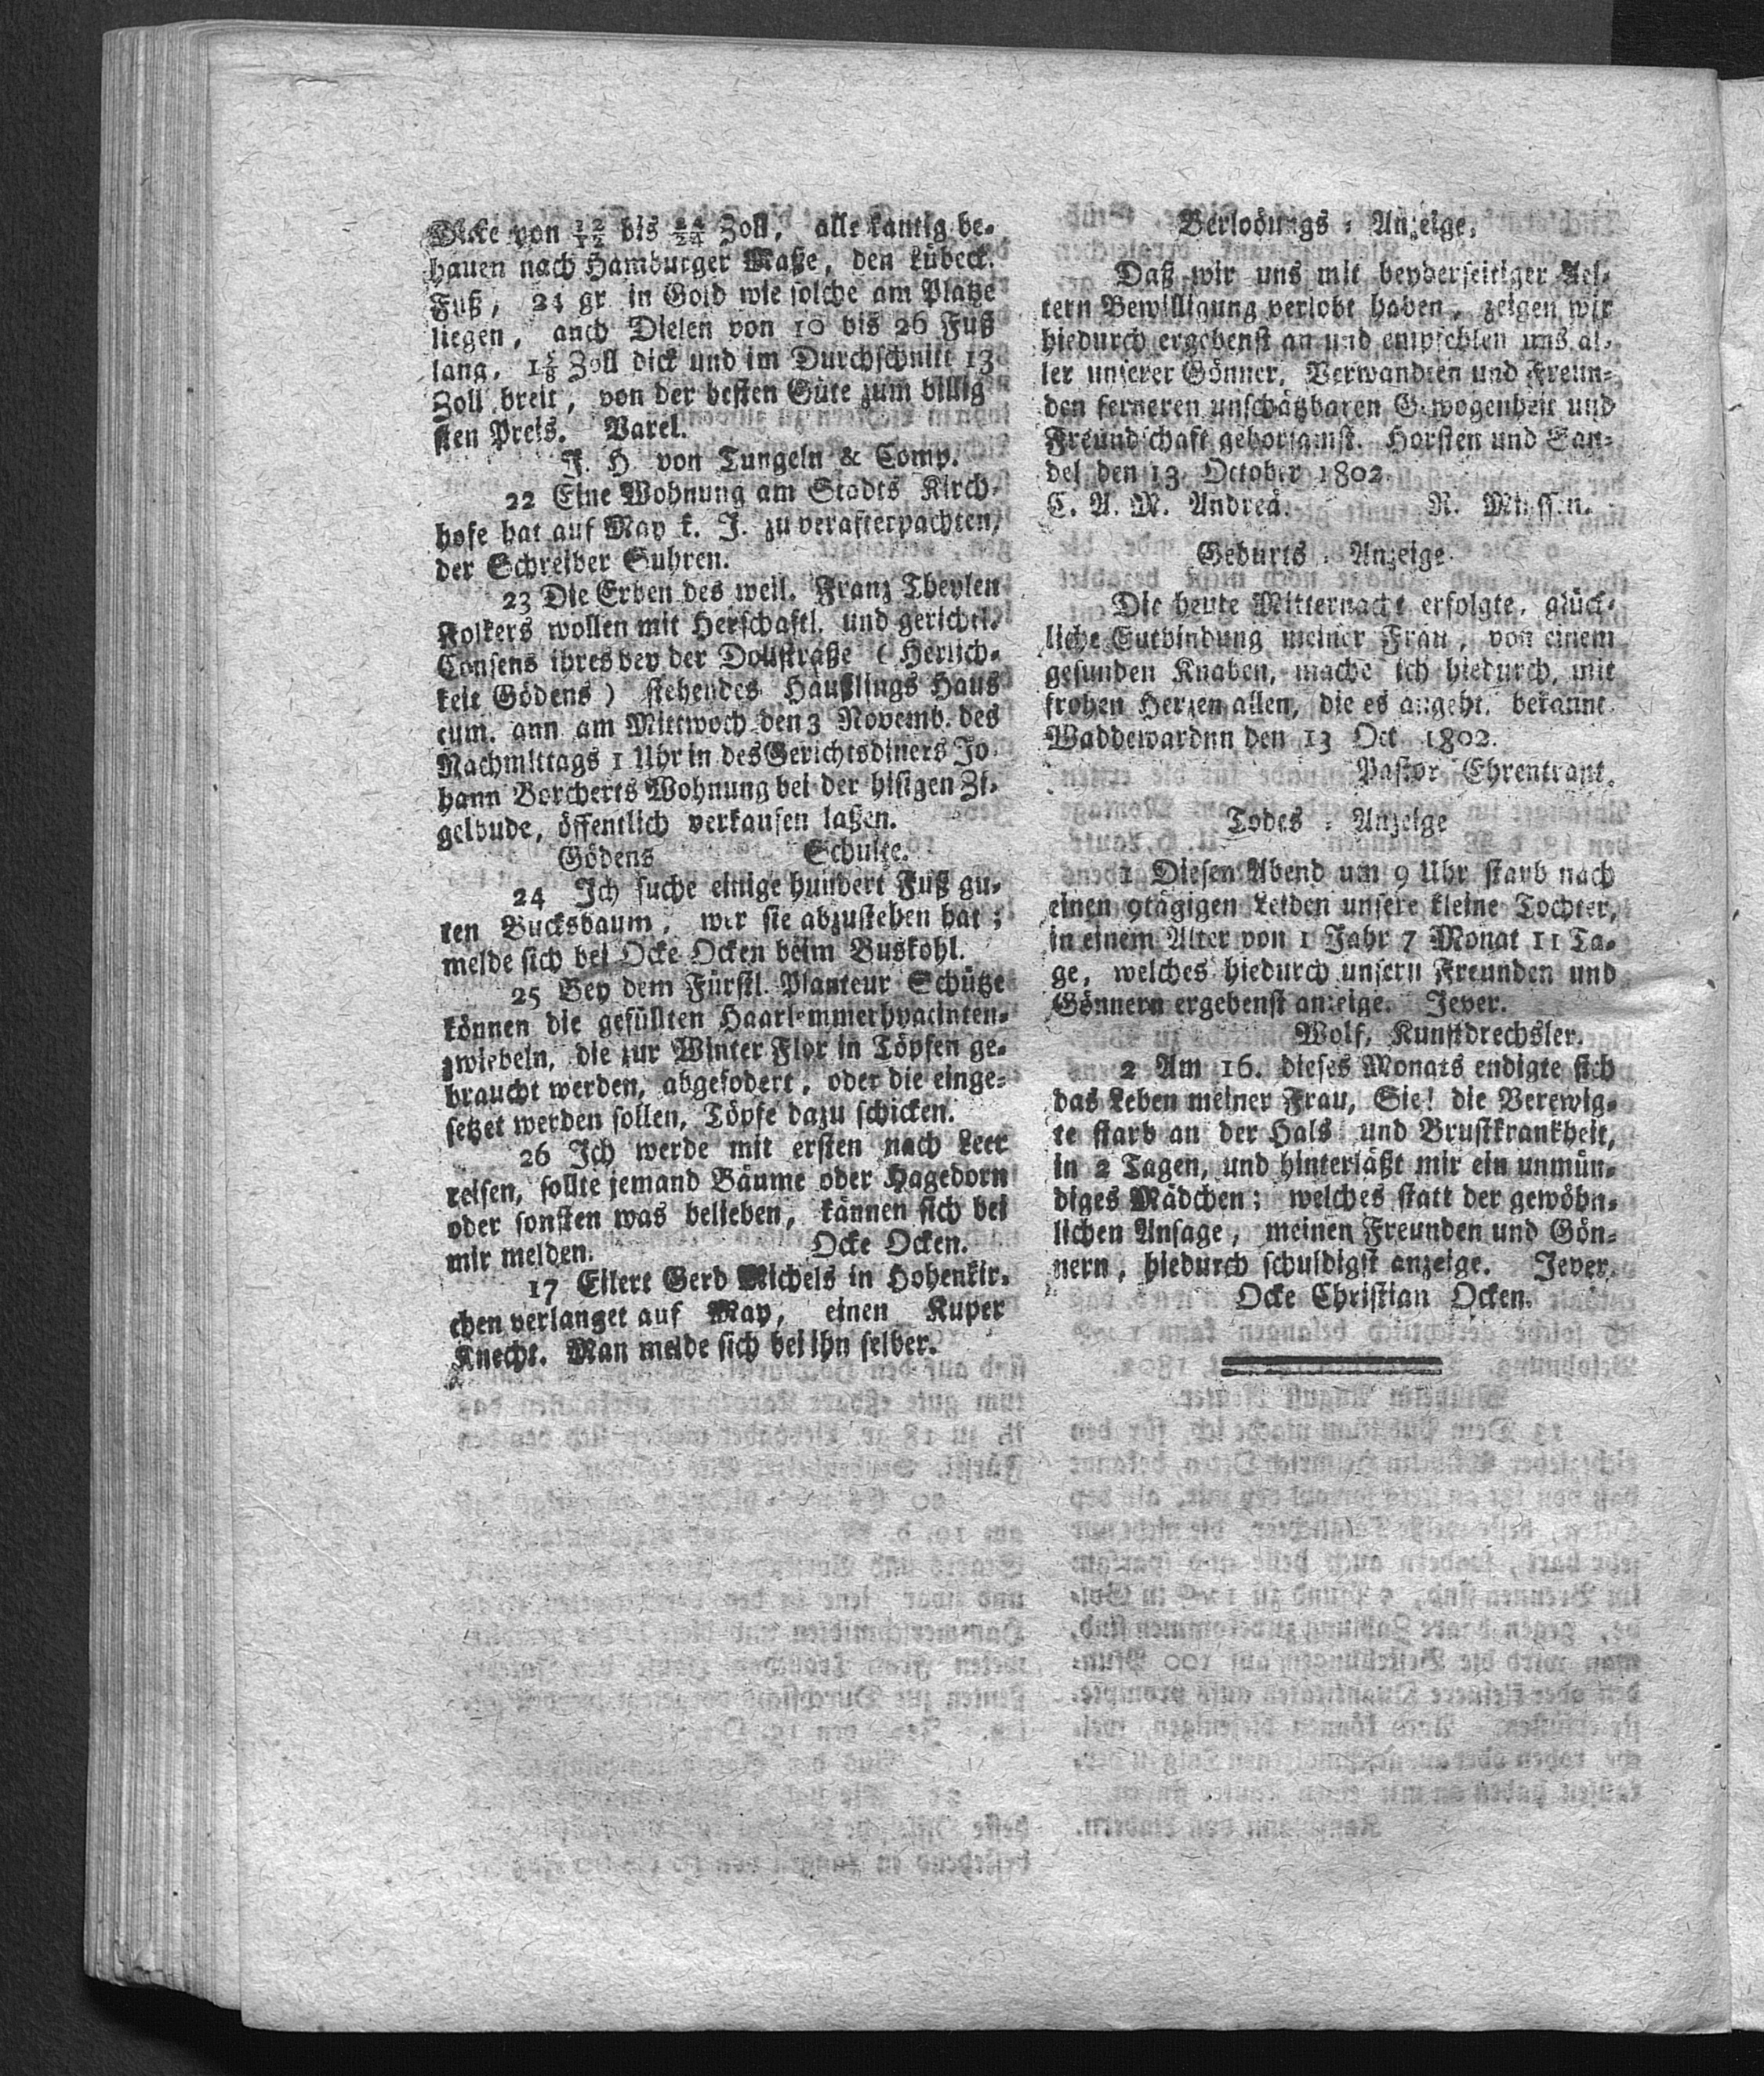 Dicke von 12/12 bis 24/24 Zoll, alle kantig be-
hauen nach Hamburger Maße, den Lübeck.
Fuß, 24 gr in Gold wie solche am Platze
liegen, auch Dielen von 10 bis 26 Fuß
lang, 1⅝ Zoll dick und im Durchschnitt 13
Zoll breit, von der besten Güte zum billig
sten Preis. Varel.
J. H von Tungeln & Comp.
22 Eine Wohnung am Stadts Kirch-
hofe hat auf May k. J. zu verafterpachten,
der Schreiber Suhren.
23 Die Erben des weil. Franz Theylen
Folkers wollen mit Herschaftl. und gerichtl.
Consens ihres bey der Dollstraße (Herlich-
keit Gödens) stehendes Häußlings Haus
cum. ann am Mittwoch den 3 Novemb. des
Nachmittags 1 Uhr in des Gerichtsdiners Jo
hann Borcherts Wohnung bei der hisigen Zi-
gelbude, öffentlich verkaufen laßen.
Gödens Schulte.
24 Ich suche einige hundert Fuß gu-
ten Bucksbaum, wer sie abzusteben hat;
melde sich bei Ocke Ocken beim Buskohl.
25 Bey dem Fürstl. Planteur Schütze
können die gefüllten Haarlemmerhyacinten-
zwiebeln, die zur Winter Flor in Töpfen ge-
braucht werden, abgefodert, oder die einge-
setzet werden sollen, Töpfe dazu schicken.
26 Ich werde mit ersten nach Leer
reisen, sollte jemand Bäume oder Hagedorn
oder sonsten was belieben, kännen sich bei
mir melden. Ocke Ocken.
17 Eilert Gerd Michels in Hohenkir-
chen verlanget auf May, einen Kuper
Knecht. Man melde sich bei ihn selber.
Verlobungs-Anzeige,
Daß wir uns mit beyderseitiger Ael-
tern Bewilligung verlobt haben, zeigen wir
hiedurch ergebenst an und empfehlen uns al-
ler unserer Gönner, Verwandten und Freun-
den ferneren unschätzbaren Gewogenheit und
Freundschaft gehorsamst. Horsten und San-
del den 13 October 1802.
C. A. M. Andreä. R.
Geburts-Anzeige.
Die heute Mitternacht erfolgte, glück-
liche Eutbindung meiner Frau, von einem
gesunden Knaben, mache ich hiedurch, mit
frohen Herzen allen, die es angeht, bekannt
Waddewardnn den 13 Oct 1802.
Pastor Ehrentraut.
Todes-Anzeige
1 Diesen Abend um 9 Uhr starb nach
einen 9tägigen Leiden unsere kleine Tochter,
in einem Alter von 1 Jahr 7 Monat 11 Ta-
ge, welches hiedurch unsern Freunden und
Gönnern ergebenst anzeige. Jever.
Wolf, Kunstdrechsler.
2 Am 16. dieses Monats endigte sich
das Leben meiner Frau, Sie! die Verewig-
te starb an der Hals und Brustkrankheit,
in 2 Tagen, und hinterläßt mir ein unmün-
diges Mädchen; welches statt der gewöhn-
lichen Ansage, meinen Freunden und Gön-
nern, hiedurch schuldigst anzeige. Jever.
Ocke Christian Ocken.